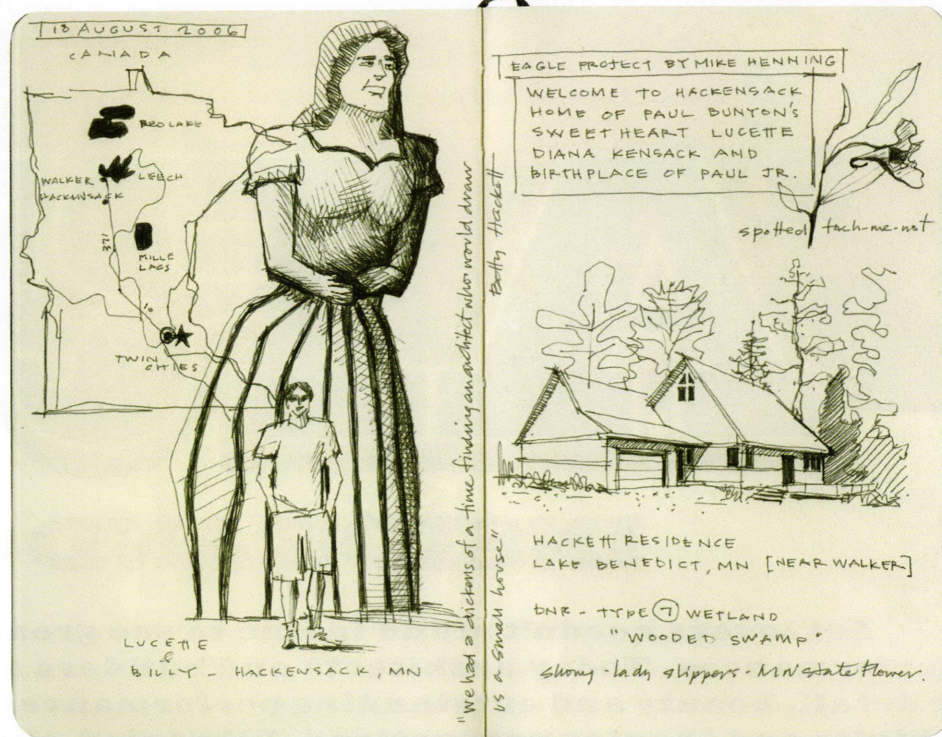 18 AUGUST 2006
CANADA
RED LAKE
LEECH
WALKER
HACKENSACK
371
MILLE
LACS
10
TWIN
CITIES
LUCETTE
&
BILLY - HACKENSACK, MN
"We had a dickens of a time finding an architect who would draw
us a small house"
Betty Hackett
EAGLE PROJECT BY MIKE HENNING
WELCOME TO HACKENSACK
HOME OF PAUL BUNYON'S
SWEETHEART LUCETTE
DIANA KENSACK AND
BIRTHPLACE OF PAUL JR.
spotted toch-me-not
HACKETT RESIDENCE
LAKE BENEDICT, MN [NEAR WALKER]
DNR - TYPE 7 WETLAND
"WOODED SWAMP"
showy lady slippers - MN state flower.